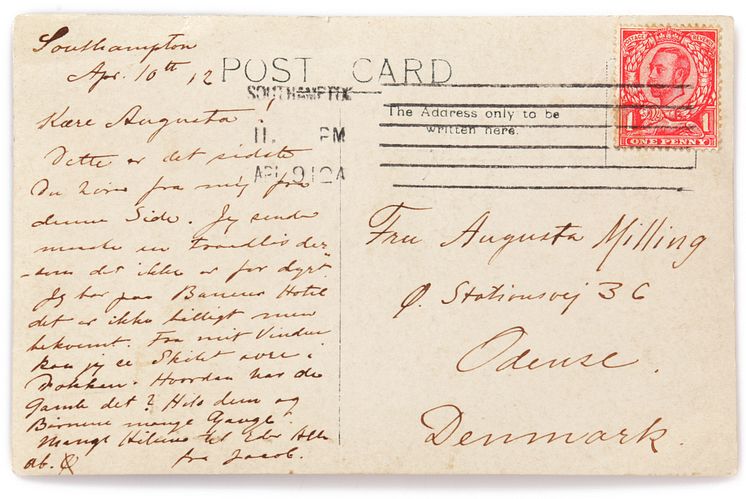 Southampton
Apr. 10th 12
Kære Augusta!
Dette er det sidste
Du hører fra mig fra
denne Side. Jeg sender
maaske en Traadløs der
som det ikke er for dyrt
Jeg bor paa Hotel
det er ikke billigt men
bekvemt. Fra mit Vindue
kan jeg se Skibet over i
Dokken. Hvordan har de
Gamle det? Hils dem og
Børnene mange Gange.
Mange Hilsner til Eder Alle
fra Jacob.
POST CARD
SOUTHAMPTON
11. PM
AP 9 12A
The Address only to be
written here.
POSTAGE REVENUE
1 1
ONE PENNY
Fru Augusta Milling
Ø. Stationsvej 36
Odense.
Denmark.